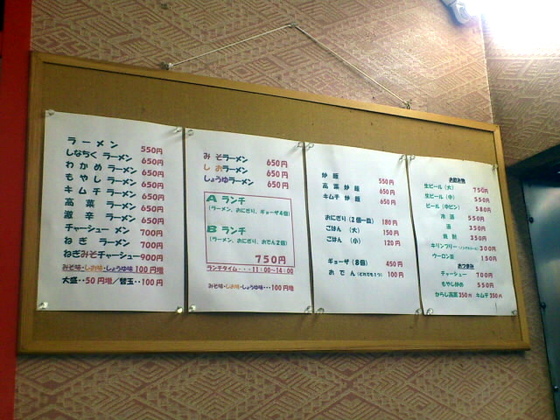 ラーメン 550円
しなちく ラーメン 650円
わかめ ラーメン 650円
もやし ラーメン 650円
キムチ ラーメン 650円
高菜 ラーメン 650円
激辛 ラーメン 650円
チャーシューメン 700円
ねぎ ラーメン 700円
ねぎみそチャーシュー900円
みそ味・しお味・しょうゆ味 100円増
大盛・・50円増/替玉・・100円
みそラーメン 650円
しおラーメン 650円
しょうゆラーメン 650円
A ランチ
(ラーメン、おにぎり、ギョーザ4個)
B ランチ
(ラーメン、おにぎり、おでん2個)
750円
ランチタイム・・・11:00~14:00
みそ味・しお味・しょうゆ味・・・100円増
炒麺 550円
高菜炒麺 650円
キムチ炒麺 650円
おにぎり(2個一皿) 180円
ごはん (大) 150円
ごはん (小) 120円
ギョーザ(8個) 450円
おでん(どれでも1つ) 100円
お飲み物
生ビール(大) 750円
生ビール(中) 550円
ビール(中ビン) 580円
冷酒 550円
酒 350円
焼酎 350円
キリンフリー(ノンアルコール) 300円
ウーロン茶 150円
おつまみ
チャーシュー 700円
もやし炒め 550円
からし高菜 350円 キムチ 350円